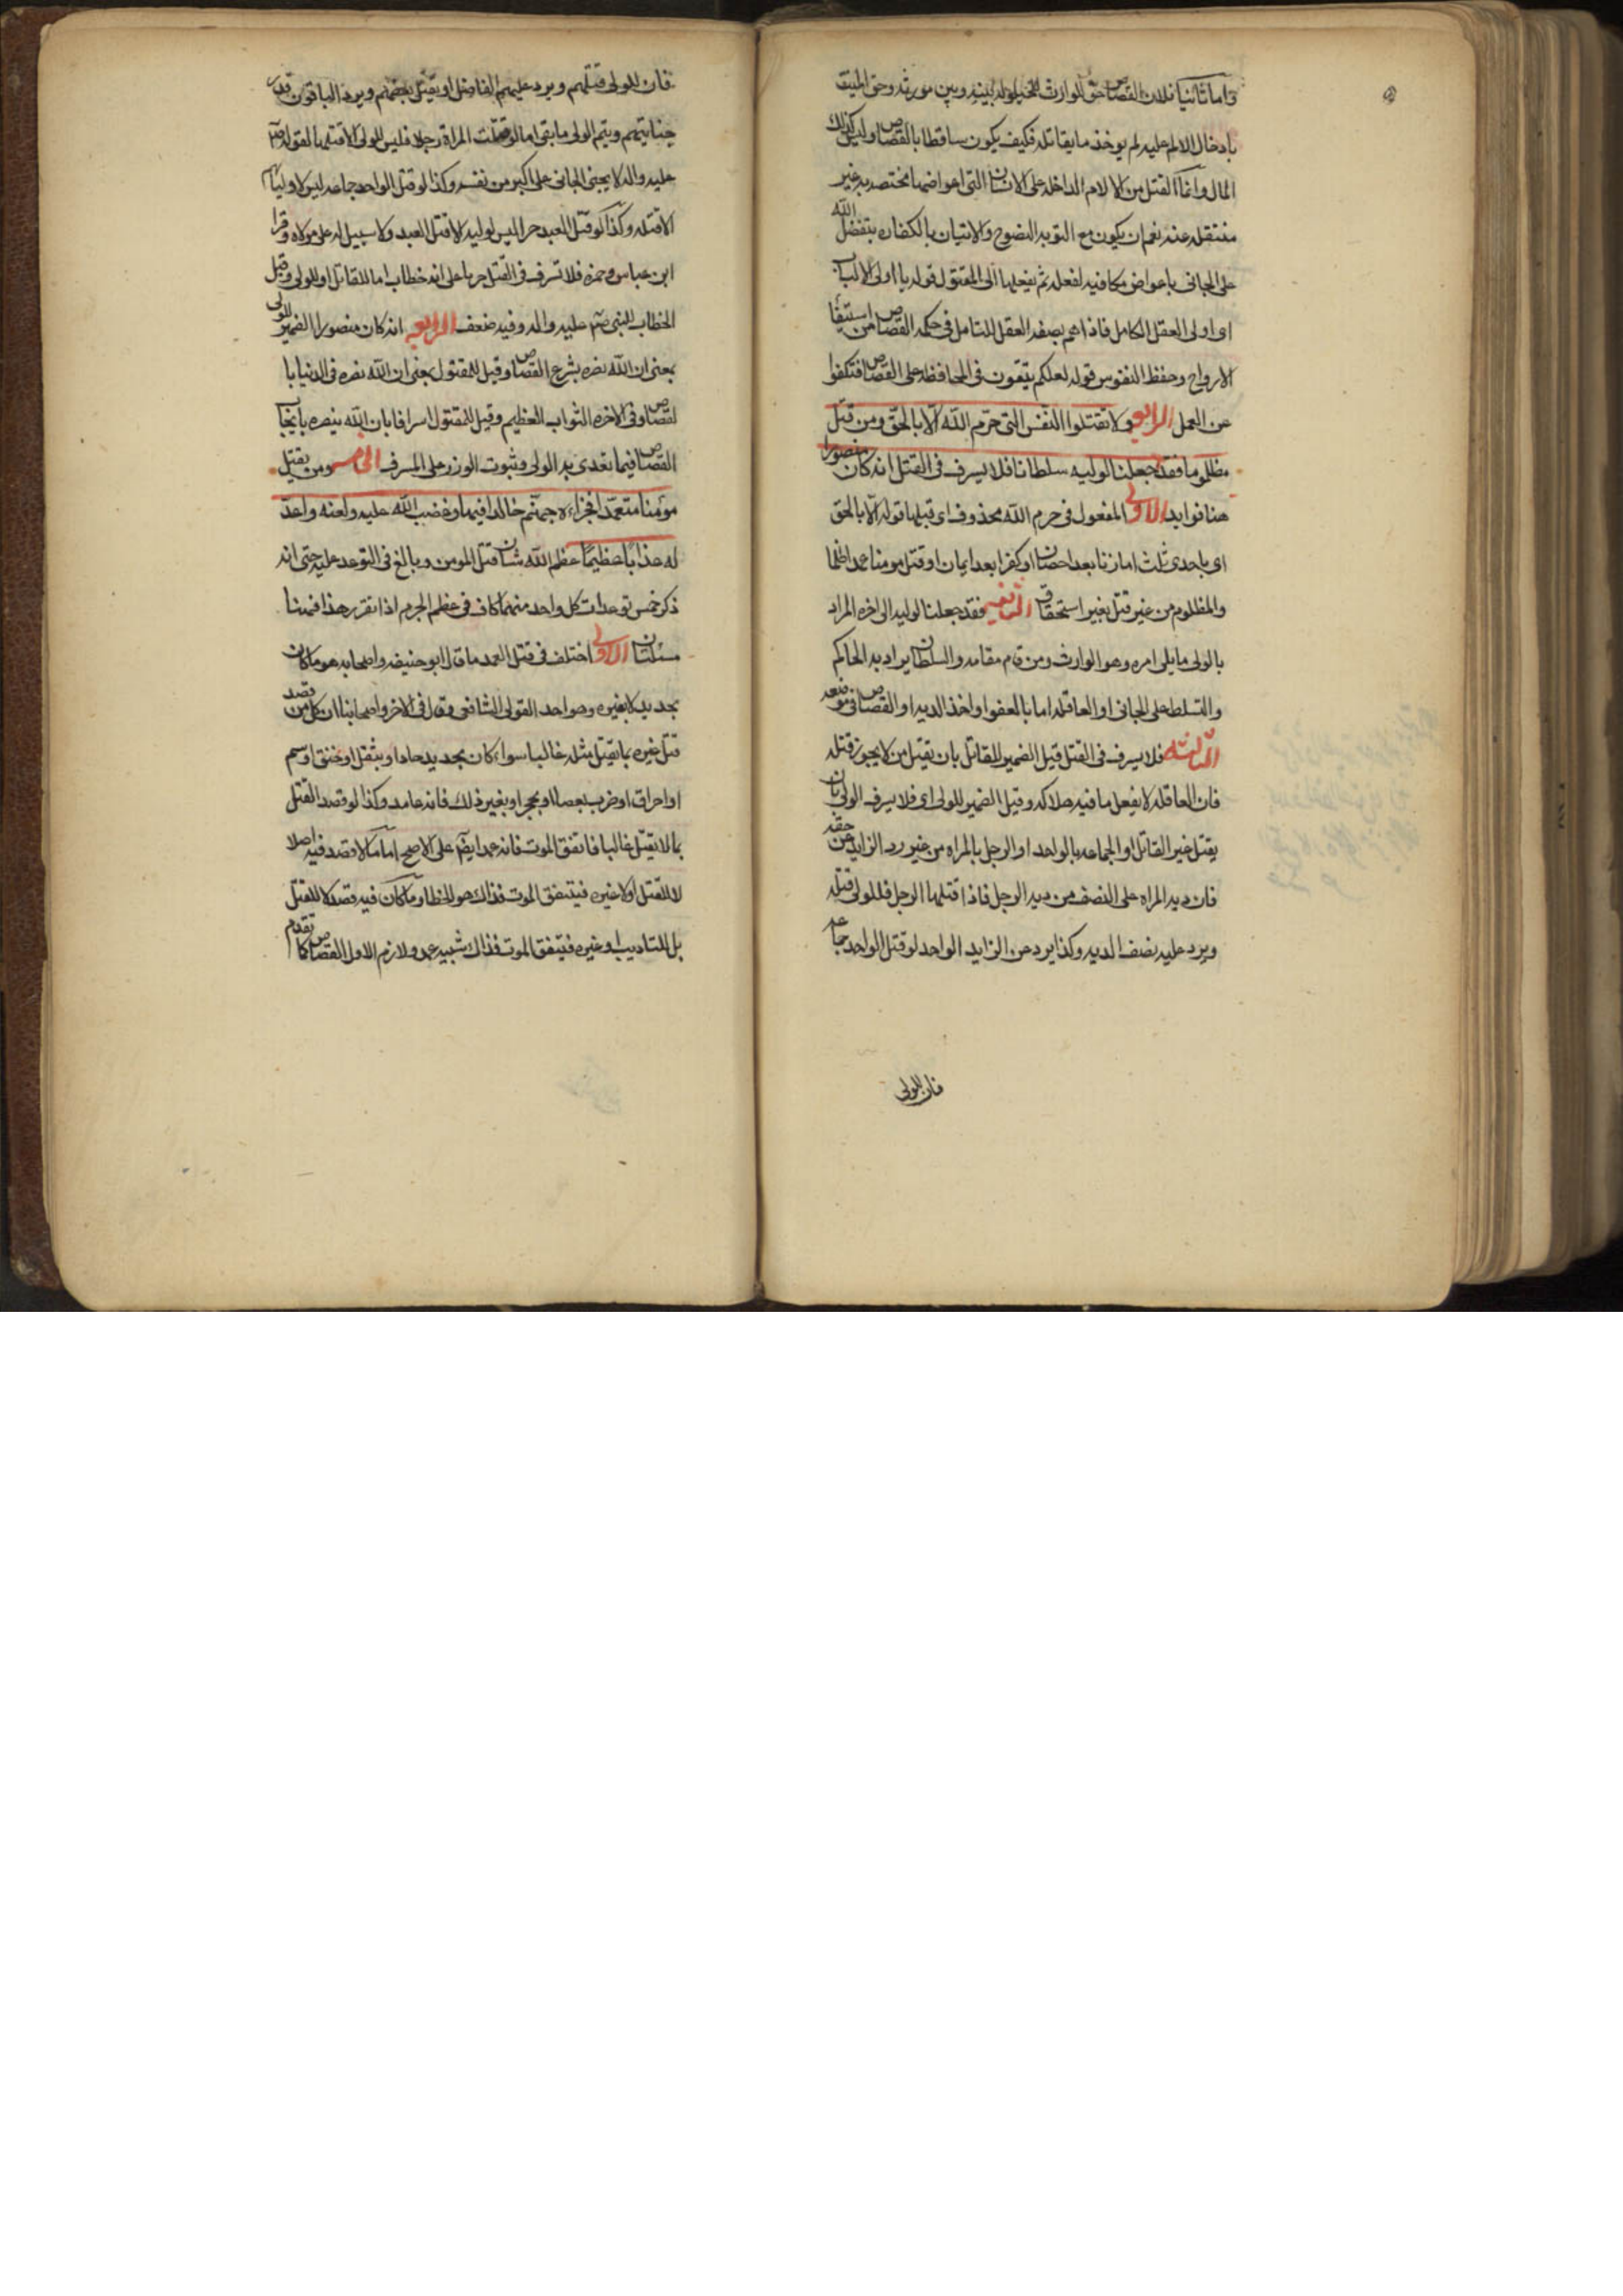 واما ثانيا فلان القصاص حق للوارث للحيلولة بينه وبين مورثه وحق المقتول
بادخال الالم عليه لم يوخذ ما يقابله فكيف يكون ساقطا بالقصاص وليس كذلك
المال وانما القتل من الالام الداخله على الانسان التي اعواضها مختصه به غير
منتقله عنه نعم ان يكون مع التوبه النصوح والاتيان بالكفاره يتفضل الله
على الجانى باعواض مكافيه لفعله ثم ينقلها الى المقتول قوله يا اولى الالباب
اى اولى العقل الكامل فاذا هم بصفه العقل المتامل فى حكمه القصاص من استبقا
الارواح وحفظ النفوس قوله لعلكم تتقون فى المحافظه على القصاص فتكفوا
عن العمل الرابع ولا تقتلوا النفس التى حرم الله الا بالحق ومن قتل
مظلوما فقد جعلنا لوليه سلطانا فلا يسرف فى القتل انه كان منصورا
هنا فوايد الاولى المفعول فى حرم الله محذوف اى قتلها قوله الا بالحق
اى باحدى ثلث اما زنا بعد احصان او كفر بعد ايمان او قتل مومنا عمدا ظلما
والمظلوم من غير قتل بغير استحقاق الثانيه فقد جعلنا لوليه الى اخره المراد
بالولى ما يلى امره وهو الوارث ومن قام مقامه والسلطان يراد به الحاكم
والتسلط على الجانى او العاقله اما بالعفو او اخذ الديه او القصاص فى موضعه
الثالثه فلا يسرف فى القتل قيل الضمير للقاتل بان يقتل من لا يجوز قتله
فان العاقل لا يفعل ما فيه هلاكه وقيل الضمير للولى اى فلا يسرف الولى بان
يقتل غير القاتل او الجماعه بالواحد او الرجل بالمراه من غير رد الزايد عن حقه
فان ديه المراه على النصف من ديه الرجل فاذا قتلها الرجل فللولى قتله
ويرد عليه نصف الديه وكذا يرد عن الزايد الواحد لو قتل الواحد جماعه
فان للولى
فان للولى قتلهم ويرد عليهم الفاضل او يقتل بعضهم ويرد الباقون قدر
جنايتهم ويتم الولى ما بقى اما لو قتلت المراة رجلا فليس للولى الا قتلها لقوله صم
عليه واله لا يجنى الجانى على اكبر من نفسه وكذا لو قتل الواحد جماعه ليس لاوليا
الا قتله وكذا لو قتل العبد حرا ليس لوليه الا قتل العبد ولا سبيل له على مولاه وقرا
ابن عباس وحمزه فلا تسرف فى القتل جريا على انه خطاب اما للقاتل او للولى وقيل
الخطاب للنبى صم عليه واله وفيه ضعف الرابعه انه كان منصورا الضمير للولى
بمعنى ان الله نصره بشرع القصاص وقيل للمقتول بمعنى ان الله نصره فى الدنيا با
لقصاص وفى الاخره الثواب العظيم وقيل للمقتول اسرافا بان الله ينصره بايجاب
القصاص فيما تعدى به الولى وثبوت الوزر على المسرف الخامس ومن يقتل
مؤمنا متعمدا فجزاءه جهنم خالدا فيها وغضب الله عليه ولعنه واعد
له عذابا عظيما عظم الله شان قتل المومن وبالغ فى التوعد عليه حتى انه
ذكر خمس توعدات كل واحد منهما كاف فى عظم الجرم اذا تقرر هذا فهنا
مسئلتان الاولى اختلف فى قتل العمد ما قال ابو حنيفه واصحابه هو ما كان
بحديد لا بغيره وهو احد القولى الشافعى وقال فى الاخر واصحابنا ان كل من قصد
قتل غيره بما يقتل مثله غالبا سواء كان بحديد حاد او بثقل او بخنق او سم
او احراق او ضرب بعصا او بحجر او بغير ذلك فانه عامد وكذا لو قصد القتل
بما لا يقتل غالبا فاتفق الموت فانه عمد ايضا على الاصح اما ما لا قصد فيه اصلا
لا للقتل ولا غيره فيتفق الموت فذلك هو الخطا وما كان فيه قصد لا للقتل
بل للتاديب او غيره فيتفق الموت فذاك شبيه عمد ولازم الاول القصاص كما تقدم